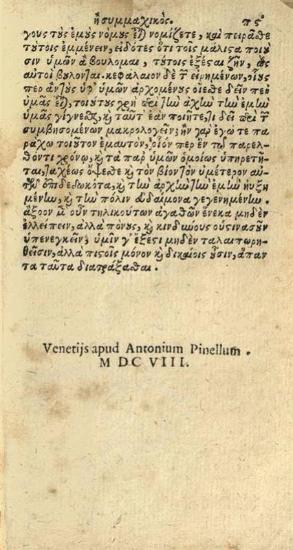 ἢ συμμαχικός. πϛʹ
γους τοὺς ἐμοὺς νόμους εἶναι νομίζετε, καὶ πειρᾶσθε
τούτοις ἐμμένειν, εἰδότες ὅτι τοῖς μάλιστα ποιοῦ
σιν ὑμῶν ἃ βούλομαι, τούτοις ἐξέσται ζῆν, ὡς
αὐτοὶ βούλονται. κεφάλαιον δὲ τῶν εἰρημένων, οἵους
περ ἂν τοὺς ὑφ' ὑμῶν ἀρχομένους οἴεσθε δεῖν περὶ
ὑμᾶς εἶναι, τοιούτους χρὴ καὶ περὶ τὴν ἀρχὴν τὴν ἐμὴν
ὑμᾶς γίγνεσθαι, καὶ ταῦτ' ἐὰν ποιῆτε, τί δεῖ περὶ τῶν
συμβησομένων μακρολογεῖν; ἢν γὰρ ἐγώ τε πα
ράχω τοιοῦτον ἐμαυτὸν, οἷον περ ἐν τῷ παρελ
θόντι χρόνῳ, καὶ τὰ παρ' ὑμῶν ὁμοίως ὑπηρετῆ
ται, ταχέως ὄψεσθε καὶ τὸν βίον τὸν ὑμέτερον αὐ
τῶν ἐπιδεδωκότα, καὶ τὴν ἀρχὴν τὴν ἐμὴν ηὐξη
μένην, καὶ τὴν πόλιν εὐδαίμονα γεγενημένην.
ἄξιον μὲν οὖν τηλικούτων ἀγαθῶν ἕνεκα μηδὲν
ἐλλείπειν, ἀλλὰ πόνους, καὶ κινδύνους οὑστινασοῦν
ὑπενεγκεῖν, ὑμῖν δ' ἔξεστι μηδὲν ταλαιπωρη
θεῖσιν, ἀλλὰ πιστοῖς μόνον καὶ δικαίοις οὖσιν, ἅπαν
τα ταῦτα διαπράξασθαι.
Venetijs apud Antonium Pinellum.
M DC VIII.